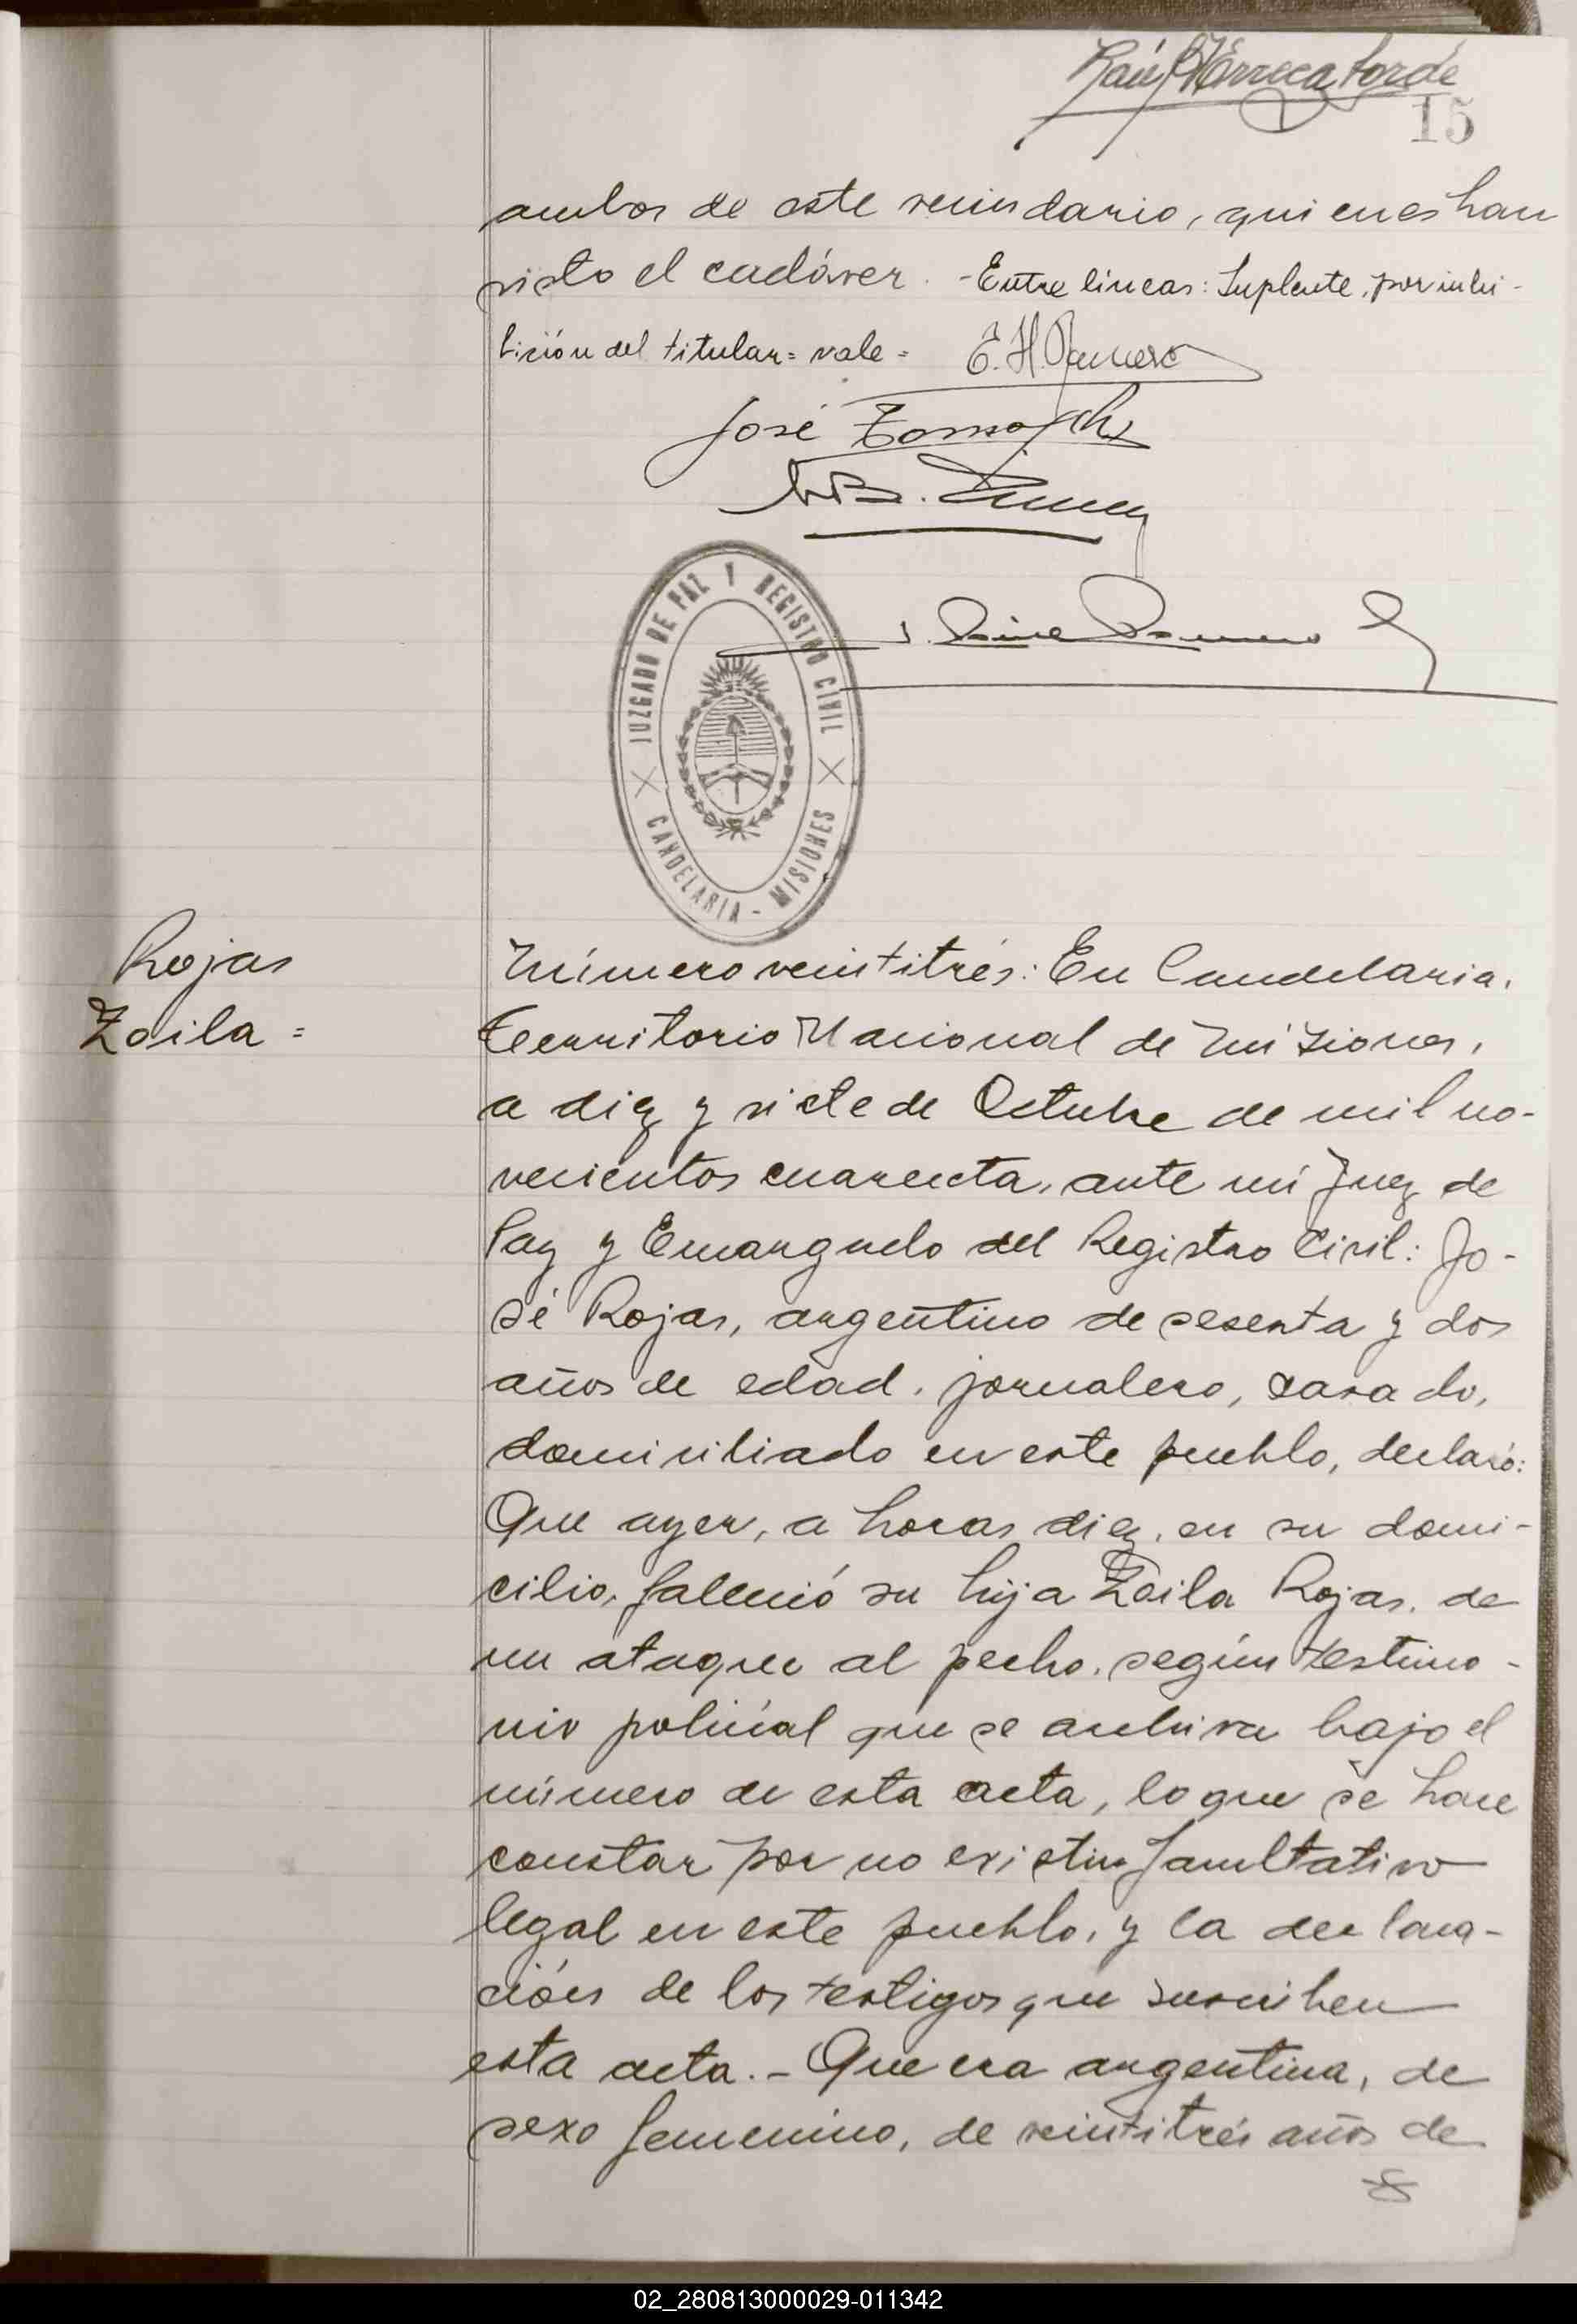 15
ambos de este vecindario, quienes han
visto el cadáver. - Entre líneas: Suplente, por inhi-
bición del titular = vale =
E. H. Romero
José
JUZGADO DE PAZ Y REGISTRO CIVIL
CANDELARIA - MISIONES
Rojas
Zoila =
Número veintitrés: En Candelaria,
Territorio Nacional de Misiones,
a diez y siete de Octubre de mil no-
vecientos cuarenta, ante mí Juez de
Paz y Encargado del Registro Civil: Jo-
sé Rojas, argentino de sesenta y dos
años de edad, jornalero, casado,
domiciliado en este pueblo, declaró:
Que ayer, a horas diez, en su domi-
cilio, falleció su hija Zoila Rojas, de
un ataque al pecho, según testimo-
nio policial que se archiva bajo el
número de esta acta, lo que se hace
constar por no existir facultativo
legal en este pueblo, y la declara-
ción de los testigos que suscriben
esta acta. - Que era argentina, de
sexo femenino, de veintitrés años de
02_280813000029-011342